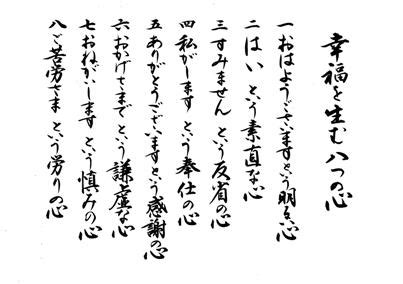 幸福を生む八つの心
一おはようございますという明るい心
二はいという素直な心
三すみませんという反省の心
四私がしますという奉仕の心
五ありがとうございますという感謝の心
六おかげさまでという謙虚な心
七おねがいしますという慎みの心
八ご苦労さまという労りの心